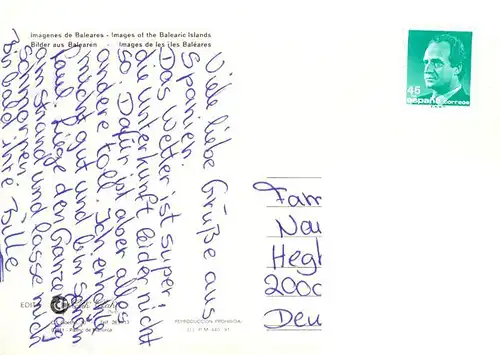 Imagenes de Baleares - Images of the Balearic Islands
Bilder aus Balearen - Images de les iles Baléares
Viele liebe Grüße aus
Spanien.
Das Wetter ist super,
die Unterkunft leider nicht
so. Dafür ist aber alles
andere toll. Ich erhole
mich gut und bin schon
faul. Liege den Ganzen Tag
am Strand und lasse mich
Bis bald ihre Bille
45
españa
correos
Fam
Nau
Hegl
2000
Deu
REPRODUCCION PROHIBIDA